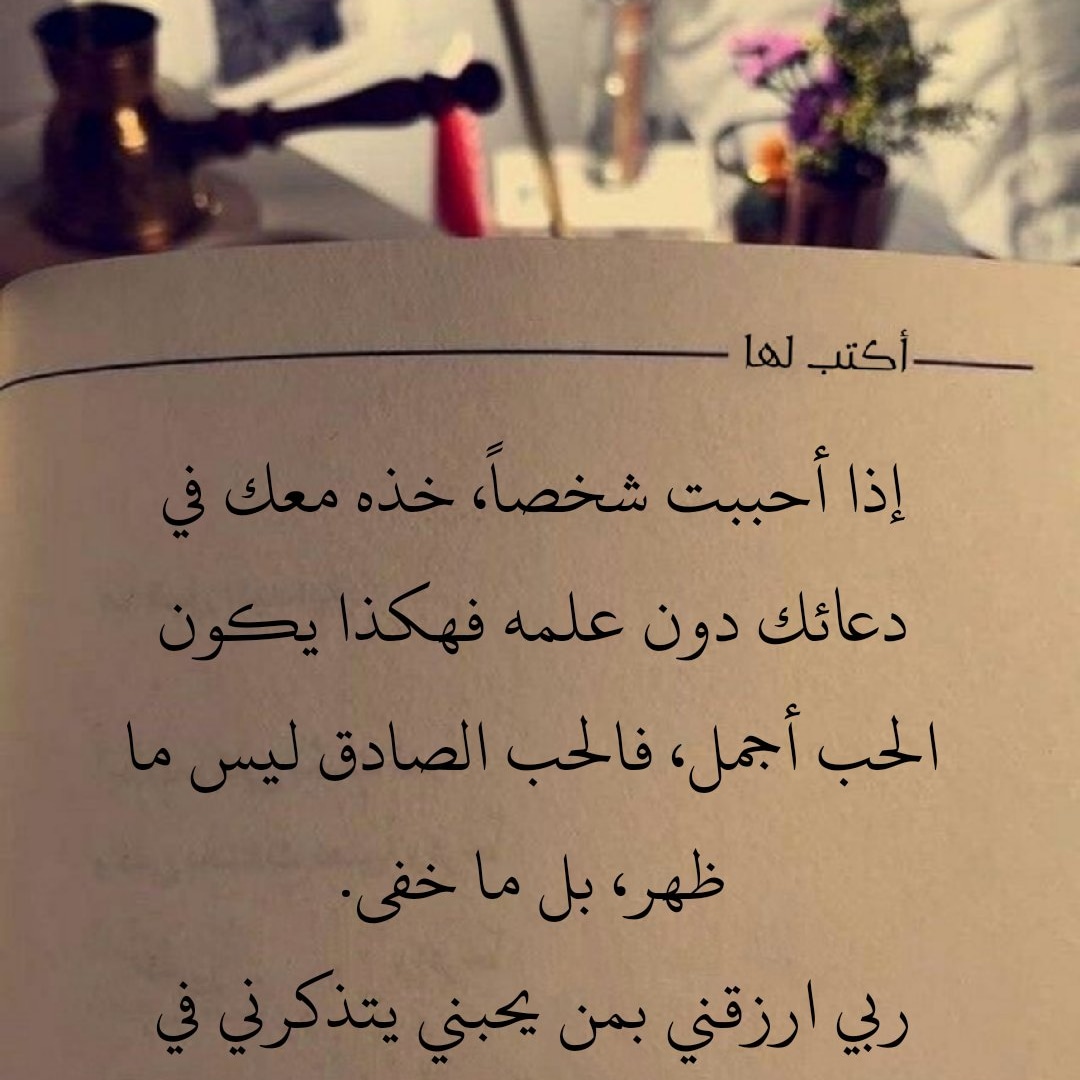 أكتب لها
إذا أحببت شخصاً، خذه معك في
دعائك دون علمه فهكذا يكون
الحب أجمل، فالحب الصادق ليس ما
ظهر، بل ما خفى.
ربي ارزقني بمن يحبني يتذكرني في